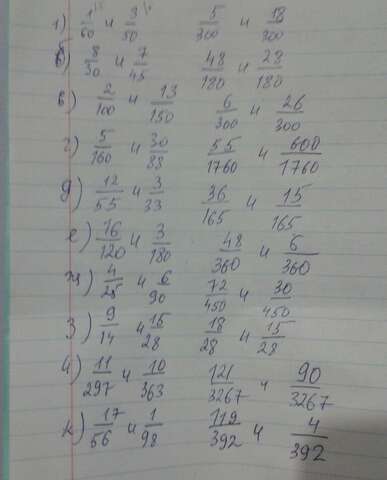 1) 1/60 и 3/50 5/300 и 18/300
б) 8/30 и 7/45 48/180 и 28/180
в) 2/100 и 13/150 6/300 и 26/300
г) 5/160 и 30/88 55/1760 и 600/1760
д) 12/55 и 3/33 36/165 и 15/165
е) 16/120 и 3/180 48/360 и 6/360
ж) 4/25 и 6/90 72/450 и 30/450
з) 9/14 и 15/28 18/28 и 15/28
и) 11/297 и 10/363 121/3267 и 90/3267
к) 17/56 и 1/98 119/392 и 4/392